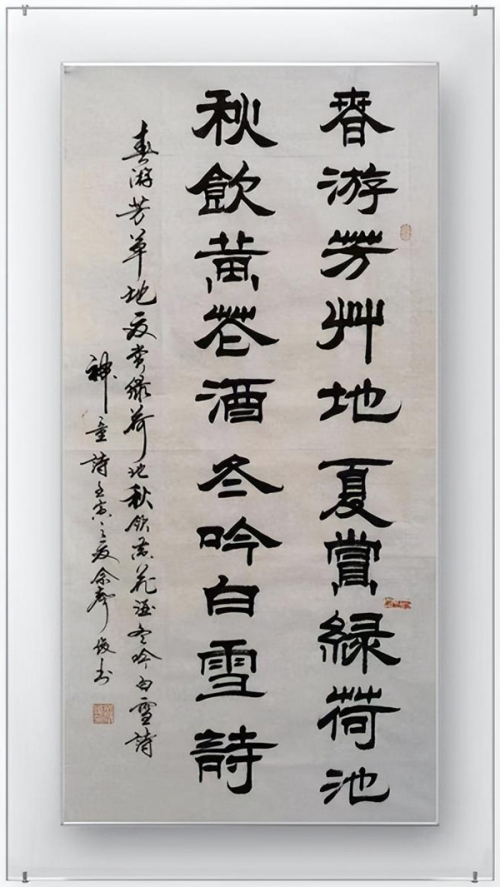 春游芳艸地夏賞緑荷池
秋飲黄花酒冬吟白雪詩
春游芳草地夏賞緑荷池秋飲黄花酒冬吟白雪詩
神童詩壬寅之夏余